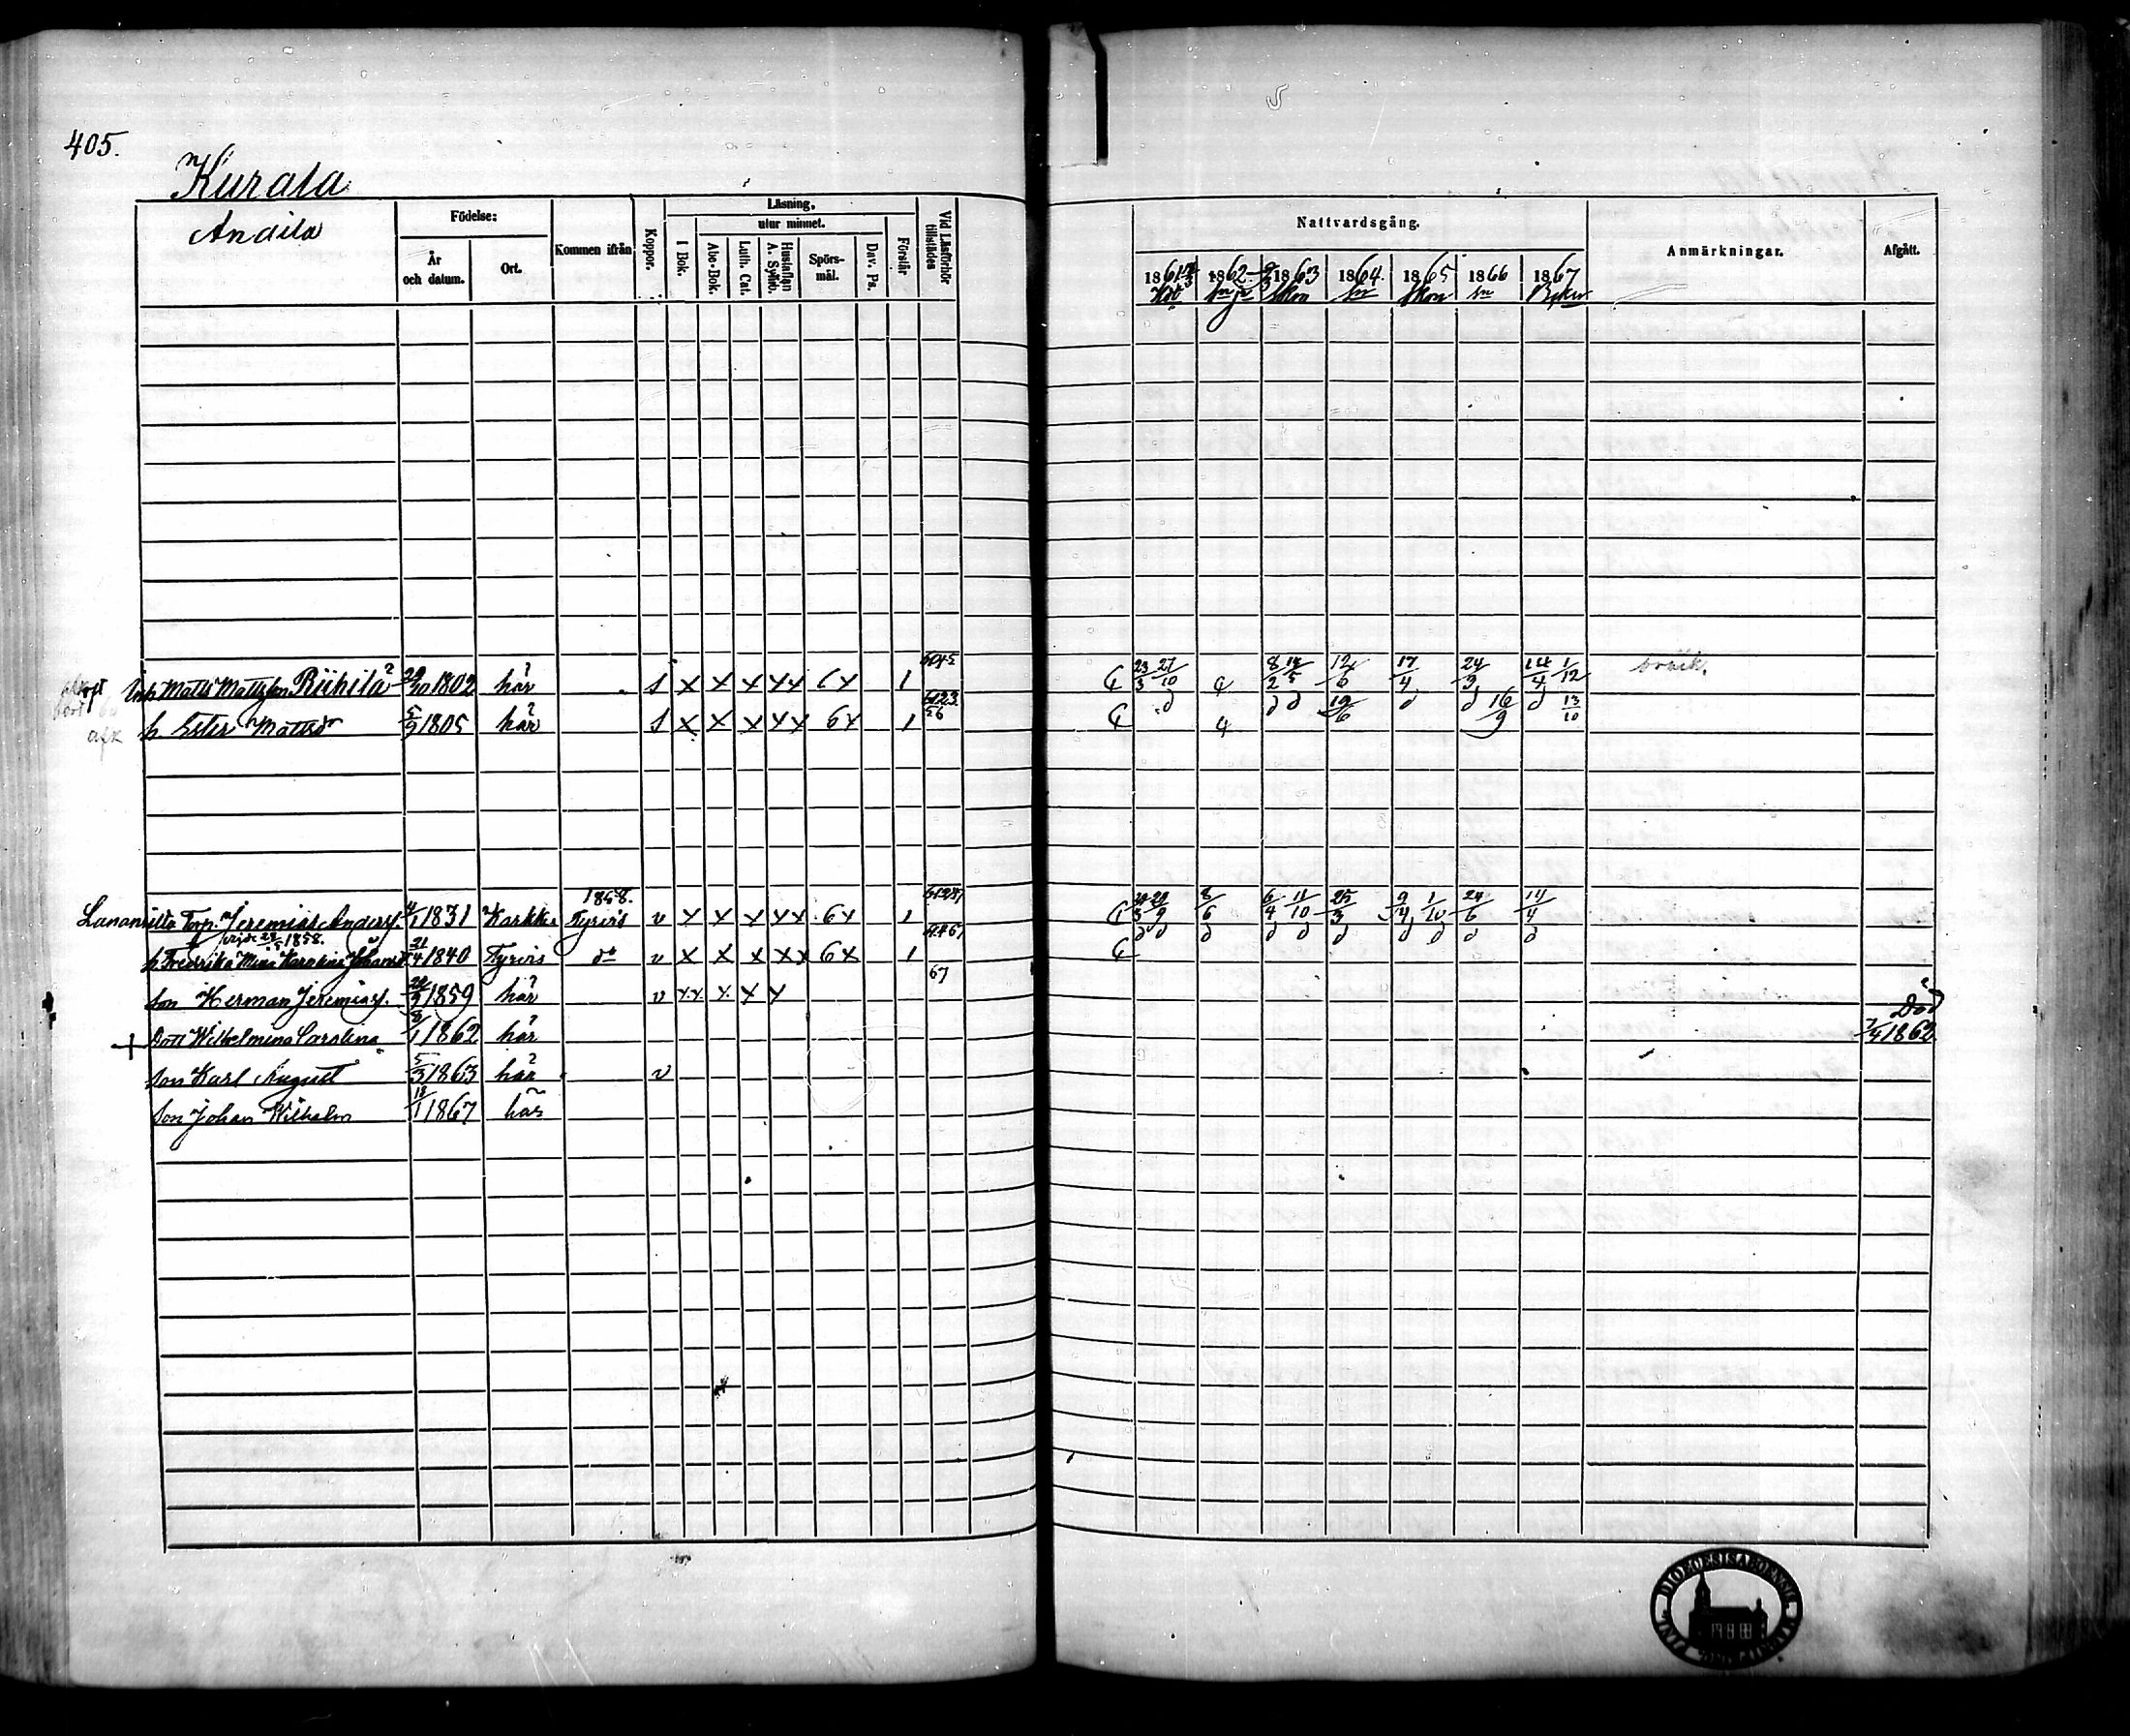 405.
Kurala
Anaila
Födelse:
År och datum.
Ort.
Kommen ifrån
Koppor.
Läsning.
I Bok.
utur minnet.
Abc-Bok.
Luth. Cat.
Hustaflan A. Symb.
Spörs-mål.
Dav. Ps.
Förstår
Vid Läsförhör tillstädes
Nattvardsgång.
1861 1862 1863 1864. 1865 1866 1867
Anmärkningar.
Afgått.
Matts Mattsson Riihilä 1802 här s x x x x x 6 x 1
h. Ester Mattsdr 5/9 1805 här s x x x x x 6 x 1
23/3 27/10 8/2 14/5 12/6 17/4 24/9 14/4 1/12
19/6 16/9 13/10
1858.
Torp. Jeremias Anders. 1831 Karkku Tyrvis v x x x x x 6 x 1
1858.
h. Fredrika Mina Karolina Johansdr 21/4 1840 Tyrvis do v x x x x x 6 x 1
8/6 6/4 11/10 25/3 9/4 1/10 24/6 14/4
67
Son Herman Jeremias. 1859 här v
+ Dott Wilhelmina Carolina 8/1 1862 här
Död
7/4 1862
Son Karl August 5/3 1863 här v
Son Johan Wilhelm 13/1 1867 här